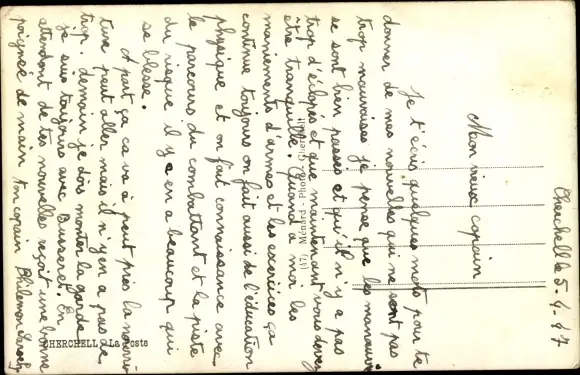 Cherchell le 5. 4. 47
Mon vieux copain
Je t'écris quelques mots pour te
donner de mes nouvelles qui ne sont pas
trop mauvaises je pense que les manœuvres
se sont bien passé et qu'il n'y a pas
trop d'éclopés et que maintenant vous devez
être tranquille. Quand à moi les
maniements d'armes et les exercices ça
continue toujours on fait aussi de l'éducation
physique et on fait connaissance avec
le parcours du combattant et la piste
du risque il y en a beaucoup qui
se blesse.
A part ça ca va à peut près la nourri
ture peut aller mais il n'y en a pas de
trop. demain je dois monter la garde
je suis toujours avec Busseret. En
attendant de tes nouvelles reçoit une bonne
poignée de main ton copain Philemon
CHERCHELL - La Poste
Ménard Photo Cherchell